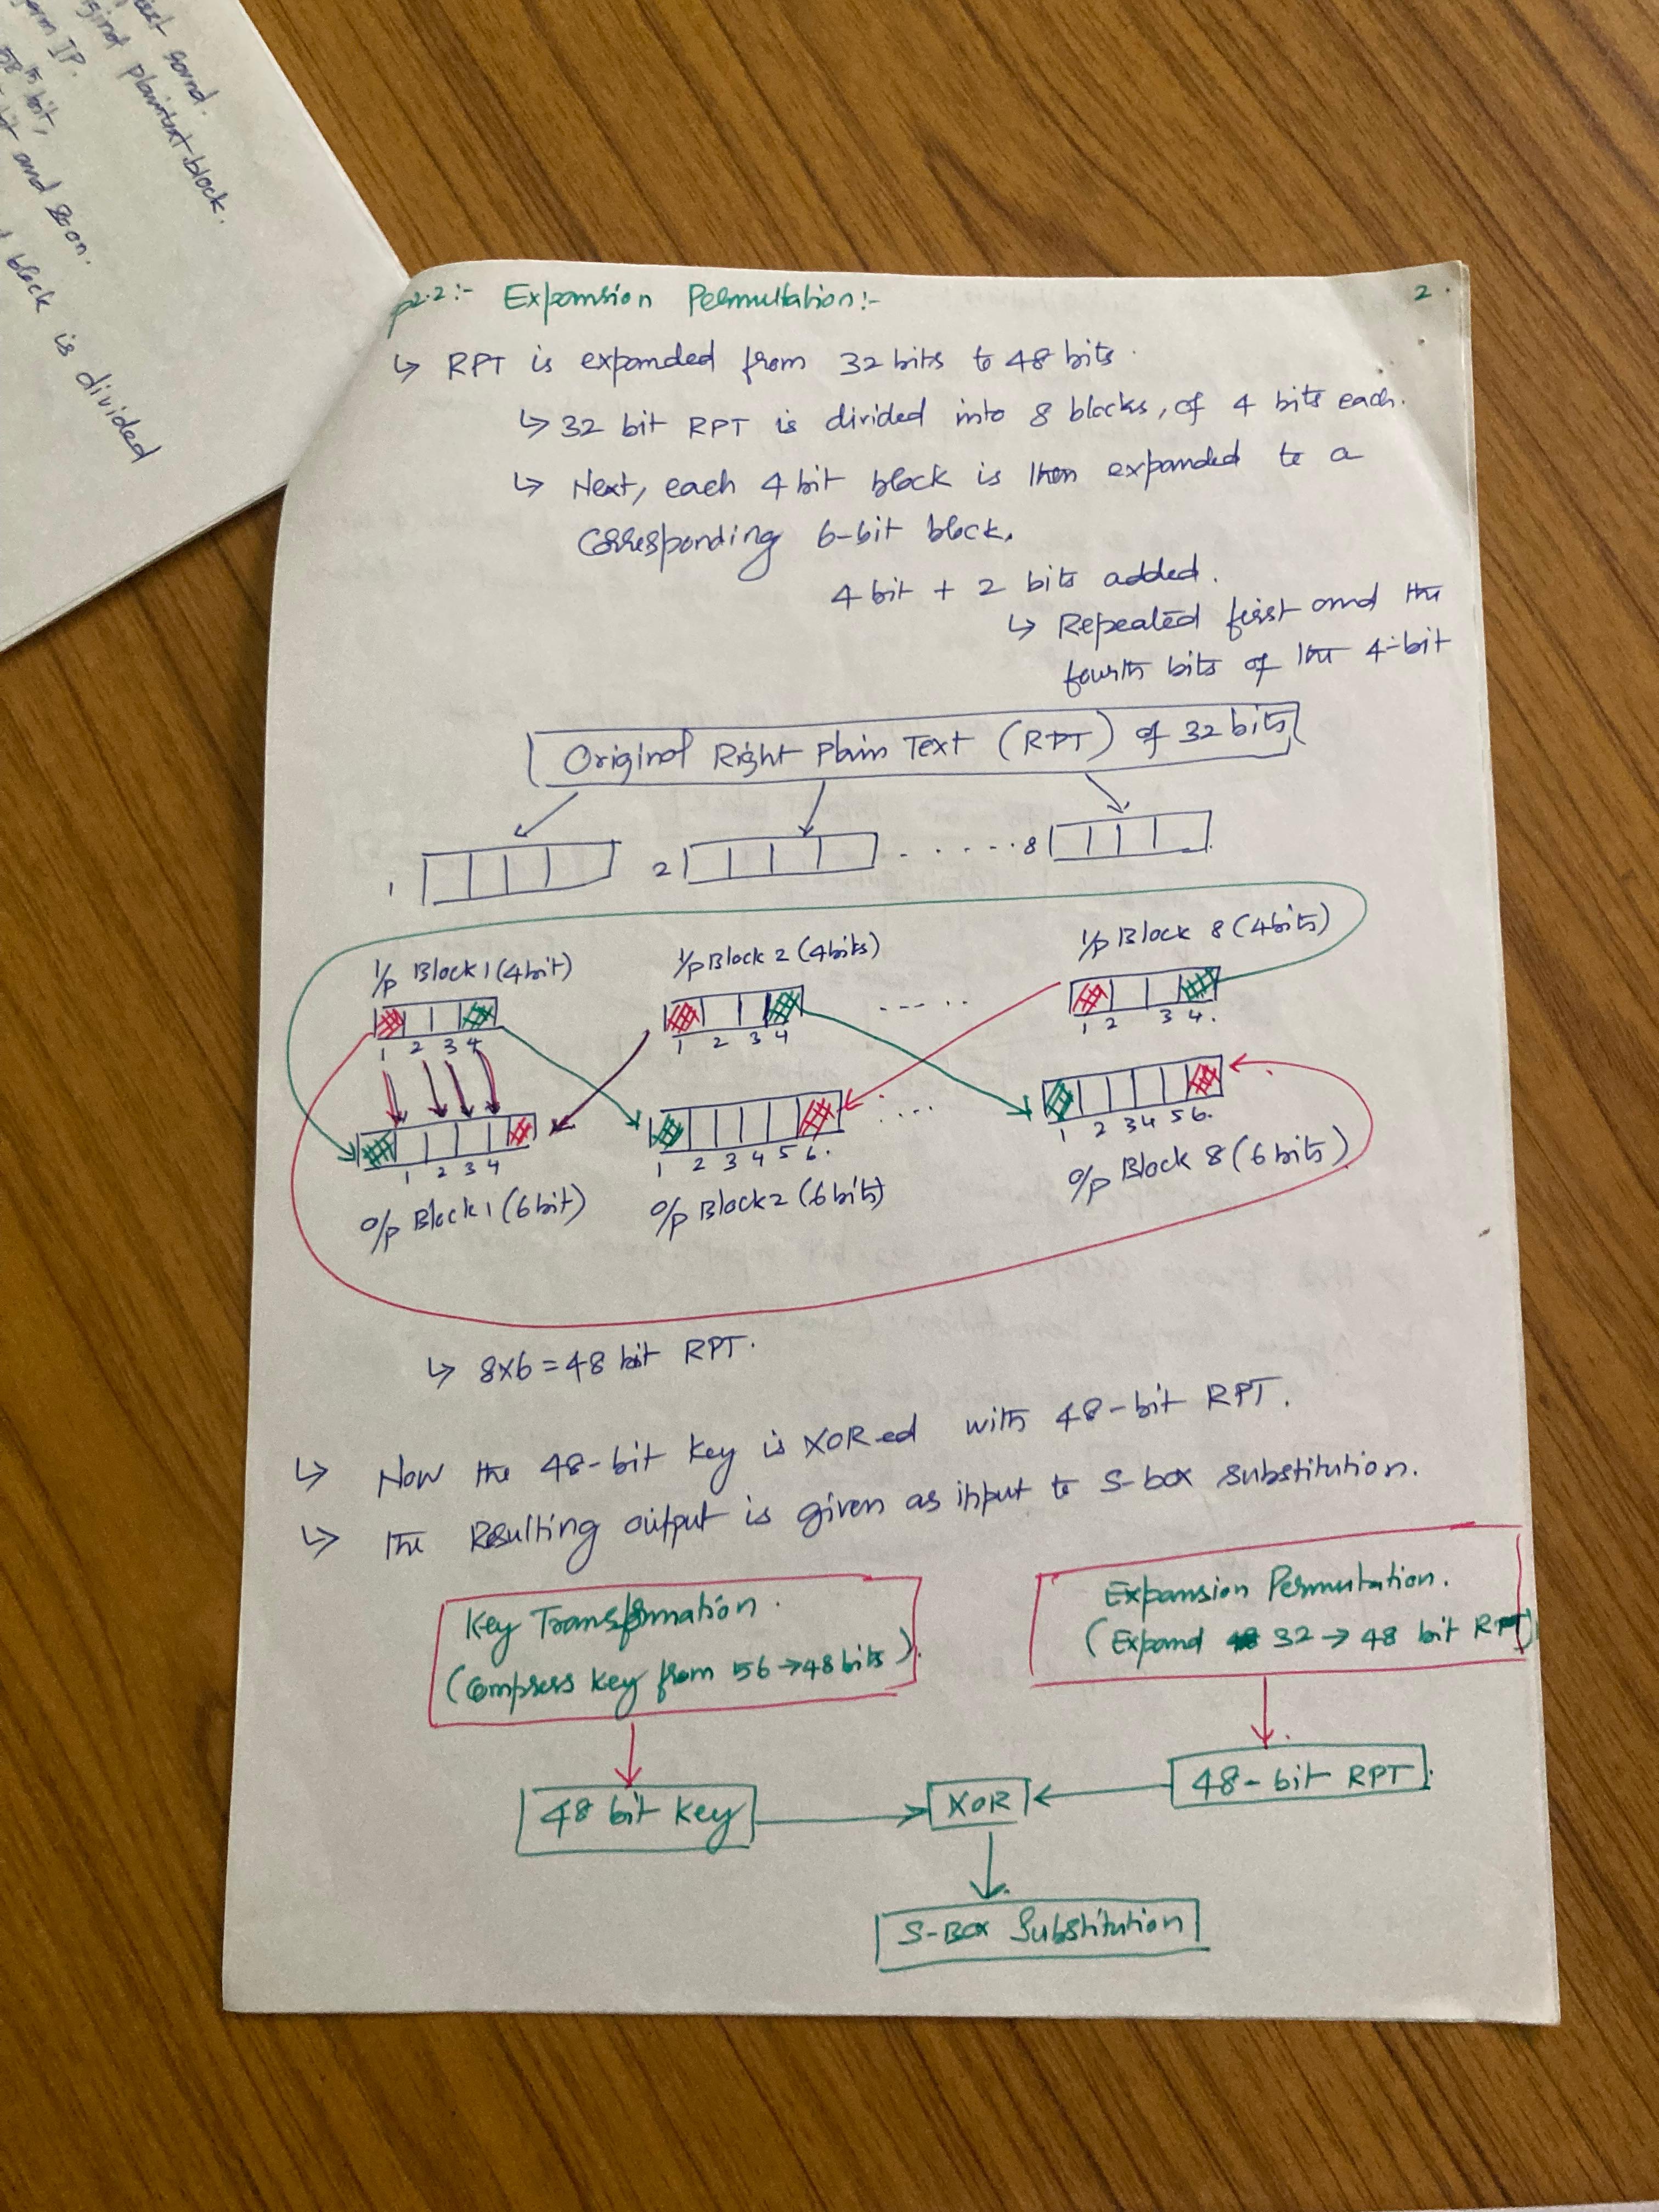 aect sound.
original plaintext block.
orm IP.
58th bit,
bit and so on.
block is divided
p2.2:- Expansion Permutation:-
2.
↳ RPT is expanded from 32 bits to 48 bits.
↳ 32 bit RPT is divided into 8 blocks, of 4 bits each.
↳ Next, each 4 bit block is then expanded to a
corresponding 6-bit block.
4 bit + 2 bits added.
↳ Repeated first and the
fourth bits of the 4-bit
Original Right Plain Text (RPT) of 32 bits
1 2 ...... 8
I/p Block 1 (4bit) I/p Block 2 (4bits) I/p Block 8 (4bits)
1 2 3 4 1 2 3 4 1 2 3 4.
1 2 3 4 1 2 3 4 5 6. 1 2 3 4 5 6.
O/p Block 1 (6bit) O/p Block 2 (6bits) O/p Block 8 (6bits)
↳ 8x6=48 bit RPT.
↳ Now the 48-bit key is XOR ed with 48-bit RPT.
↳ The Resulting output is given as input to S-box substitution.
Key Transformation.
(Compress key from 56→48bits).
Expansion Permutation.
(Expand 32→48 bit RPT)
48 bit key
XOR
48-bit RPT
S-Box Substitution